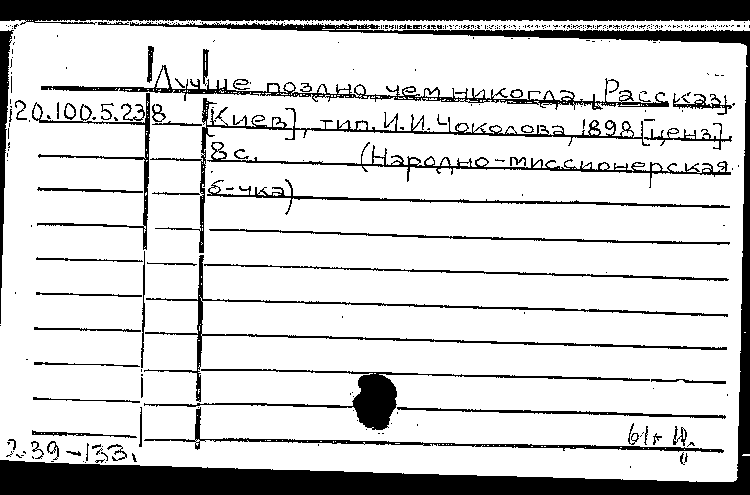 Лучше поздно, чем никогда. [Рассказ].
20.100.5.238. [Киев], тип. И.И. Чоколова, 1898 [ценз].
8 с. (Народно-миссионерская
б-чка)
2.39-133.